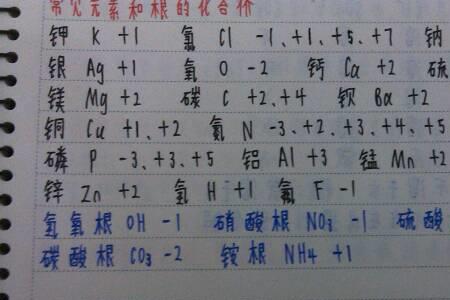 常见元素和根的化合价
钾 K +1 氯 Cl -1、+1、+5、+7 钠
银 Ag +1 氧 O -2 钙 Ca +2 硫
镁 Mg +2 碳 C +2、+4 钡 Ba +2
铜 Cu +1、+2 氮 N -3、+2、+3、+4、+5
磷 P -3、+3、+5 铝 Al +3 锰 Mn +2
锌 Zn +2 氢 H +1 氟 F -1
氢氧根 OH -1 硝酸根 NO₃ -1 硫酸
碳酸根 CO₃ -2 铵根 NH₄ +1